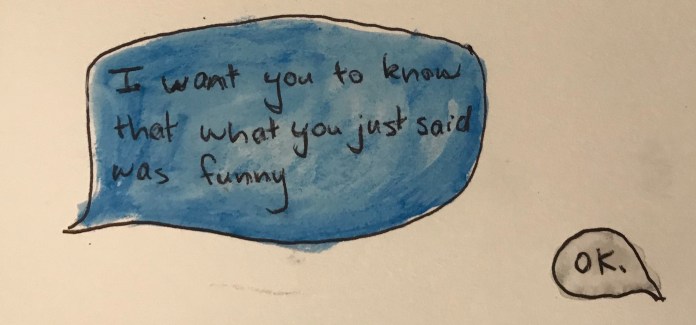 I want you to know
that what you just said
was funny
OK.